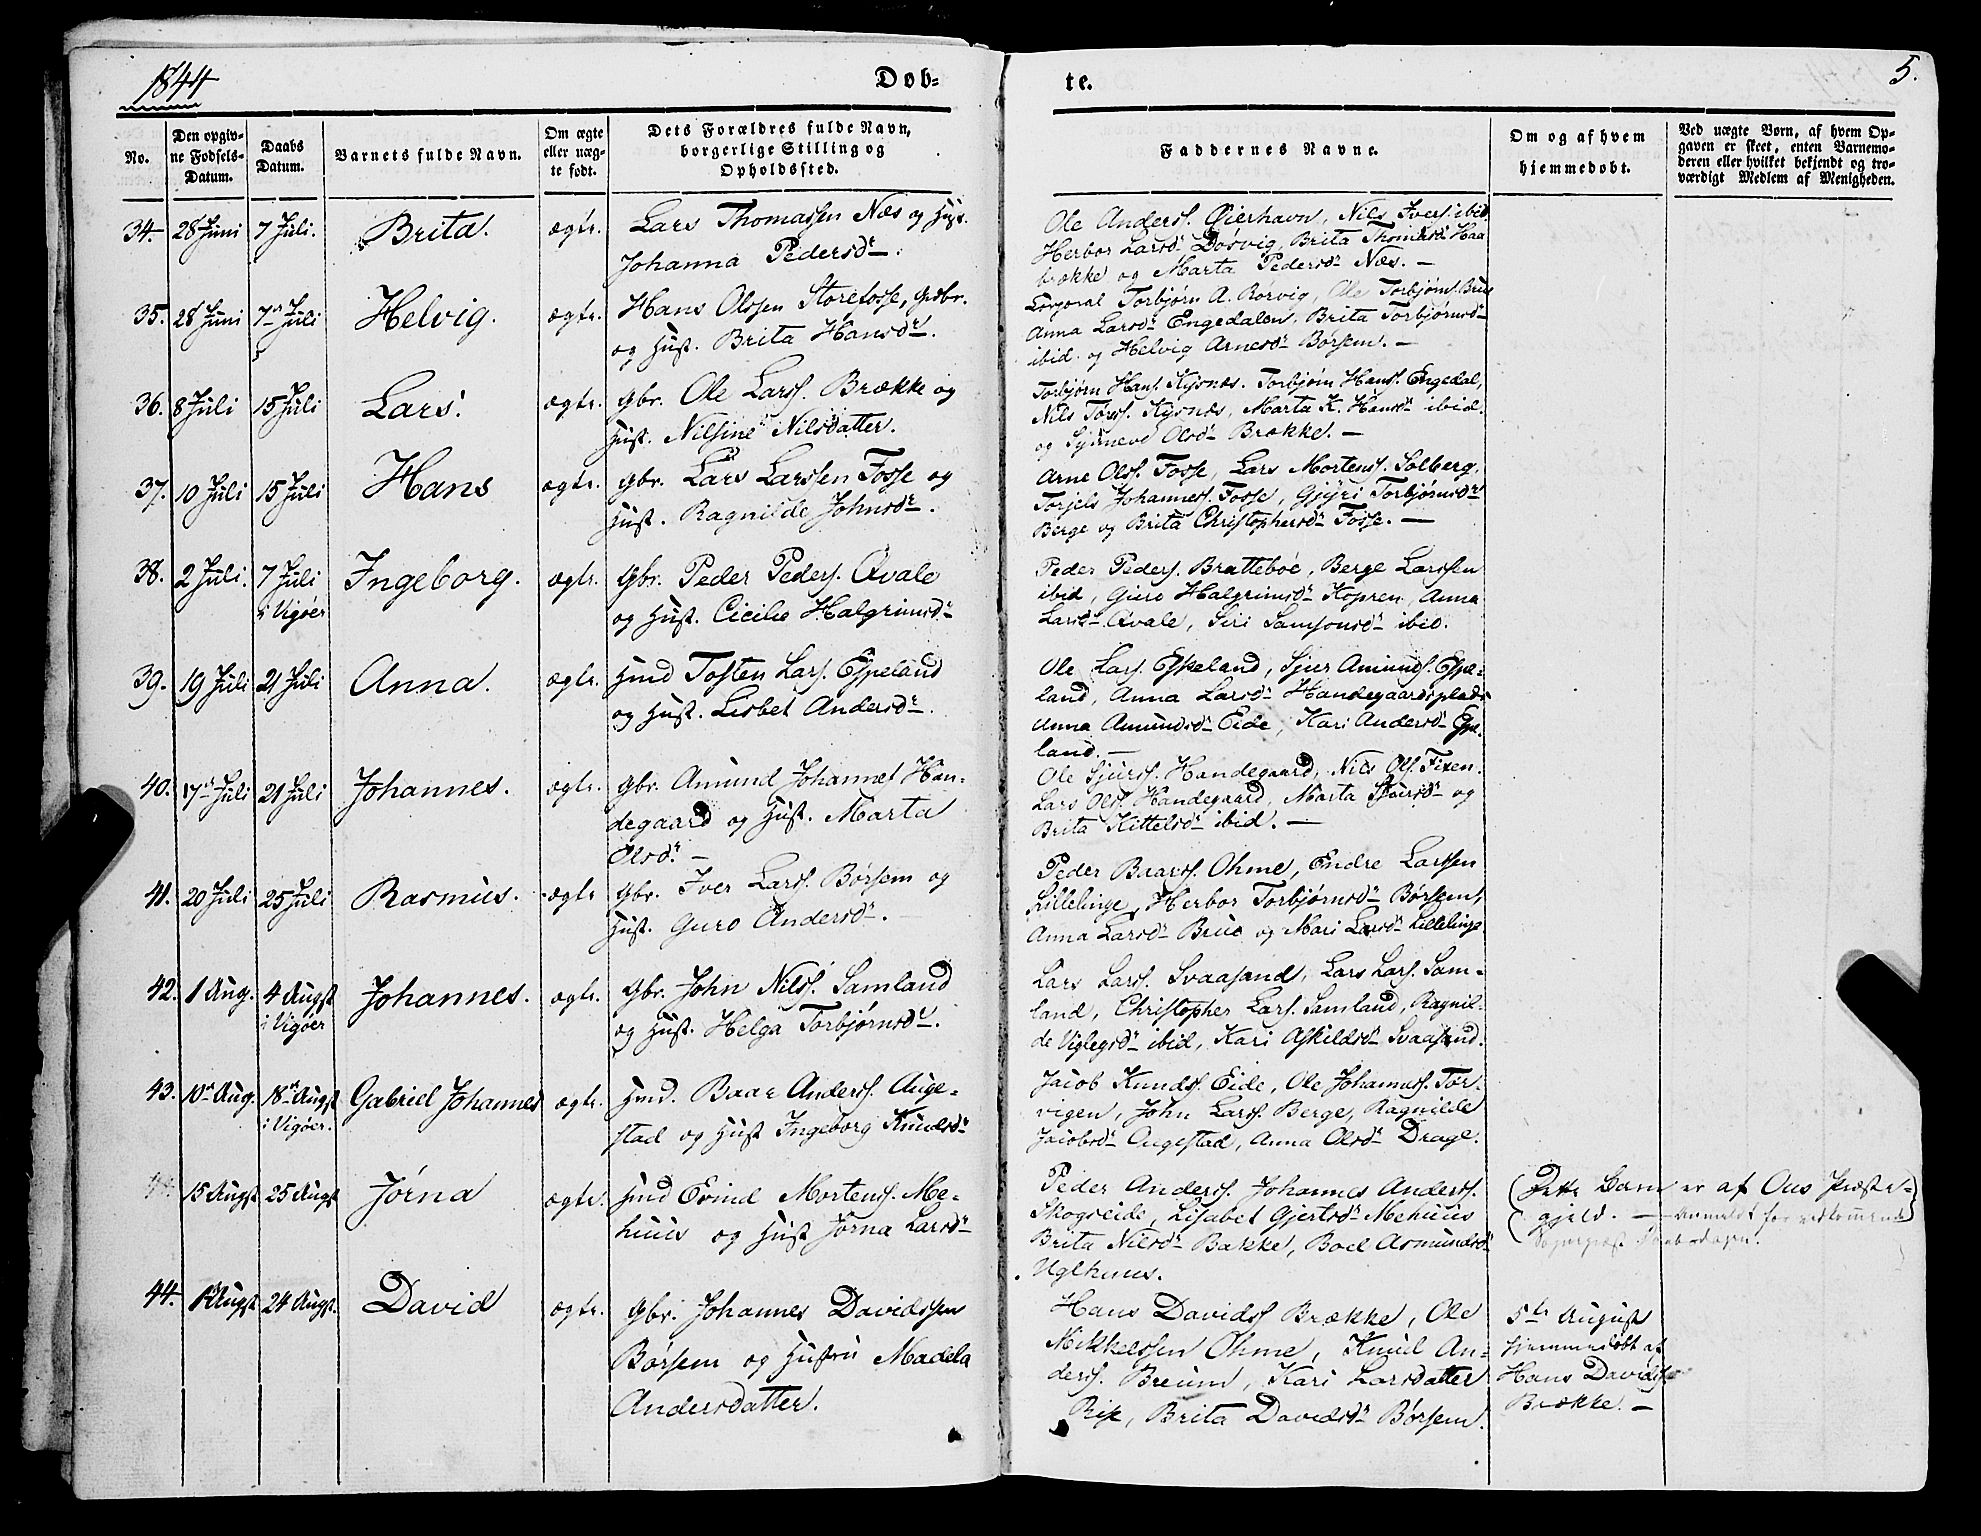 1844
Døb-
te.
5.
No.
Den opgiv-
ne Fødsels-
Datum.
Daabs
Datum.
Barnets fulde Navn.
Om ægte
eller uæg-
te født.
Dets Forældres fulde Navn,
borgerlige Stilling og
Opholdssted.
Faddernes Navne.
Om og af hvem
hjemmedøbt.
Ved uægte Børn, af hvem Op-
gaven er skeet, enten Barnemo-
deren eller hvilket bekjendt og tro-
værdigt Medlem af Menigheden.
34. 28 Juni 7 Juli. Brita. ægte.
Lars Thomassen Næs og Hust.
Johanna Pedersdr.
Ole Anderss. Øierhavn, Nils Ivers. ibid,
Herbor Larsdr Døsvig, Brita Thomasdr Haa
brække og Marta Pedersdr Næs. —
35. 28 Juni 7de Juli Helvig. ægte.
Hans Olssen Storefosse, Gdbr.
og Hust. Brita Hansdr.
Corporal Torbjørn A. Rørvig, Ole Torbjørns. Brue
Anna Larsdr Engedalen, Brita Torbjørnsdr
ibid. og Helvig Arnesdr Børsem. —
36. 8 Juli 15 Juli Lars. ægte.
Gbr. Ole Larss. Brække og
Hust. Nilsine Nilsdatter.
Torbjørn Hans. Kysnæs. Torbjørn Hanss. Engedal,
Nils Torss. Kysnæs, Marta K. Hansdr ibid.
og Synneve Olsdr Brække. —
37. 10 Juli 15 Juli Hans ægte.
Gbr. Lars Larssen Fosse og
Hust. Ragnilde Johnsdr.
Arne Olss. Fosse, Lars Mortenss. Solberg,
Torjels Johanness. Fosse, Gjyri Torbjørnsdr
Berge og Brita Christophersdr Fosse. —
38. 2 Juli. 7 Juli Ingeborg. ægte.
i Vigøer
Gbr. Peder Peders. Qvale
og Hust. Cicilie Halgrimsdr
Peder Peders. Brattebøe, Berge Larssen
ibid, Guro Halgrimsdr Kopren, Anna
Larsdr Qvale, Siri Samsonsdr ibid.
39. 19 Juli 21 Juli Anna. ægte.
Hmd Tosten Lars. Espeland
og Hust. Lisbet Andersdr.
Ole Lars. Espeland, Sjur Amunds. Espe-
land, Anna Larsdr Handegaardsplads
Anna Amundsdr Eide, Kari Andersdr Espe-
land. —
40. 17de Juli 21 Juli Johannes. ægte.
Gbr. Amund Johannes Han-
degaard og Hust. Marta
Olsdr. —
Ole Sjurss. Handegaard, Nils Ols. Fixen.
Lars Olss. Handegaard, Marta Sjursdr og
Brita Kittelsdr ibid. —
41. 20 Juli 25 Juli Rasmus. ægte
Gbr. Iver Larss. Børsem og
Hust. Guro Andersdr.
Peder Baars. Ohme, Endre Larssen
Lillelinge, Herbor Torbjørnsdr Børsem,
Anna Larsdr Brue og Mari Larsdr Lillelinge
42. 1 Aug. 4 Augst Johannes. ægte.
i Vigøer
Gbr. John Nilss. Samland
og Hust. Helga Torbjørnsdr.
Lars Larss. Svaasand, Lars Lars. Sam-
land, Christopher Lars. Samland, Ragnil-
de Viglegsdr ibid, Kari Askildsdr Svaasand.
43. 10de Aug. 18de Augst Gabriel Johannes ægte.
i Vigøer.
Hmd. Baar Anderss. Auge-
stad og Hust Ingeborg Knudsdr
Jacob Knudss. Eide, Ole Johanness. Tor-
vigen, John Larss. Berge, Ragnilde
Jacobsdr Augestad, Anna Olsdr Drage.
15 Augst 25 Augst Jørna ægte.
Hmd Evind Mortenss. Me-
huus og Hust Jørna Larsdr
Peder Anderss. Johannes Anderss.
Skogseide, Lisabet Gjertsdr Mehuus
Brita Nilsdr Bakke, Boel Asmundsdr
Uglhuus.
Dette Barn er af Ous Præste-
gjeld. — Anmeldt for vedkommende
44. Augst 24 Augst. David ægte.
Gbr. Johannes Davidssen
Børsem og Hustru Madela
Andersdatter.
Hans Davidss Brække, Ole
Mikkelssen Ohme, Knud An-
derss. Breum, Kari Larsdatter
Rise, Brita Davidsdr Børsem.
5te August
hjemmedøbt af
Hans Davidss.
Brække. —